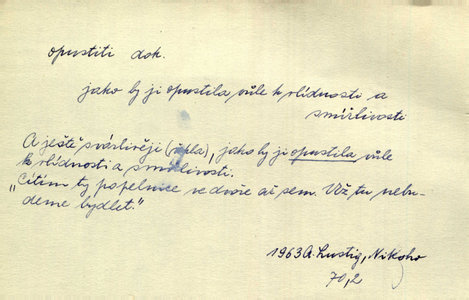 opustiti dok.
jako by ji opustila vůle k vlídnosti a
smířlivosti
A ještě svárlivěji (řekla), jako by ji opustila vůle
k vlídnosti a smířlivosti.
„Cítím ty popelnice ve dvoře až sem. Už tu nebu-
deme bydlet."
1963 A. Lustig, Nikoho
70,2